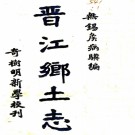 無錫侯病驥編
晋江鄉土志
奇樹明新學校刊